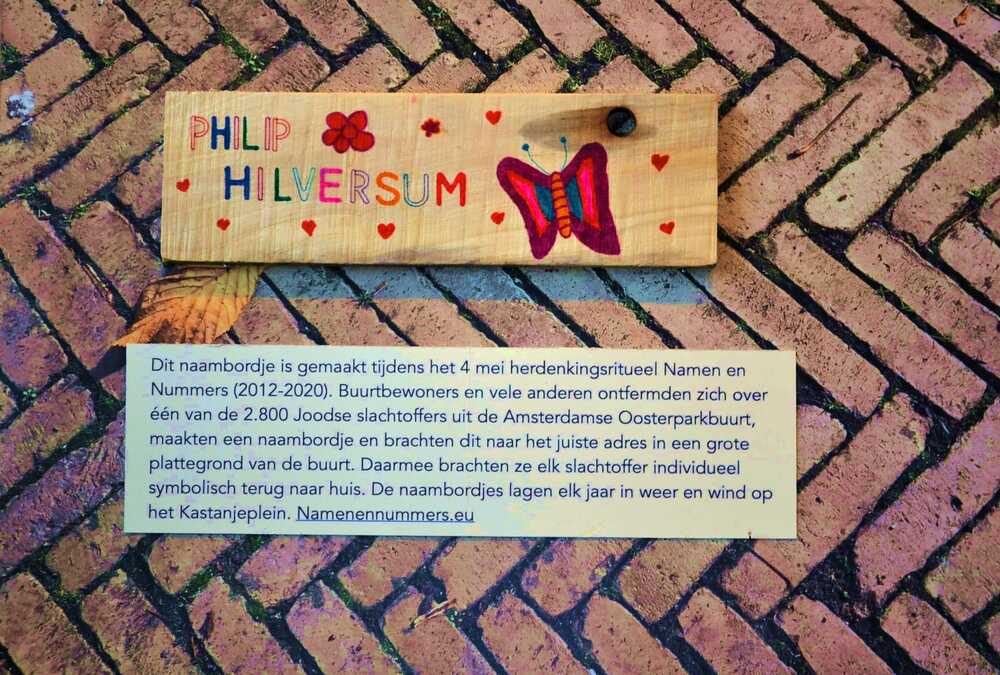 PHILIP
HILVERSUM
Dit naambordje is gemaakt tijdens het 4 mei herdenkingsritueel Namen en
Nummers (2012-2020). Buurtbewoners en vele anderen ontfermden zich over
één van de 2.800 Joodse slachtoffers uit de Amsterdamse Oosterparkbuurt,
maakten een naambordje en brachten dit naar het juiste adres in een grote
plattegrond van de buurt. Daarmee brachten ze elk slachtoffer individueel
symbolisch terug naar huis. De naambordjes lagen elk jaar in weer en wind op
het Kastanjeplein. Namenennummers.eu